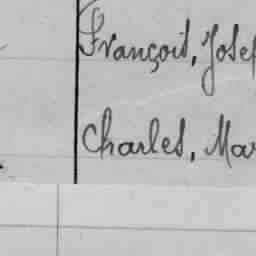 François, Josef
Charles, Mar